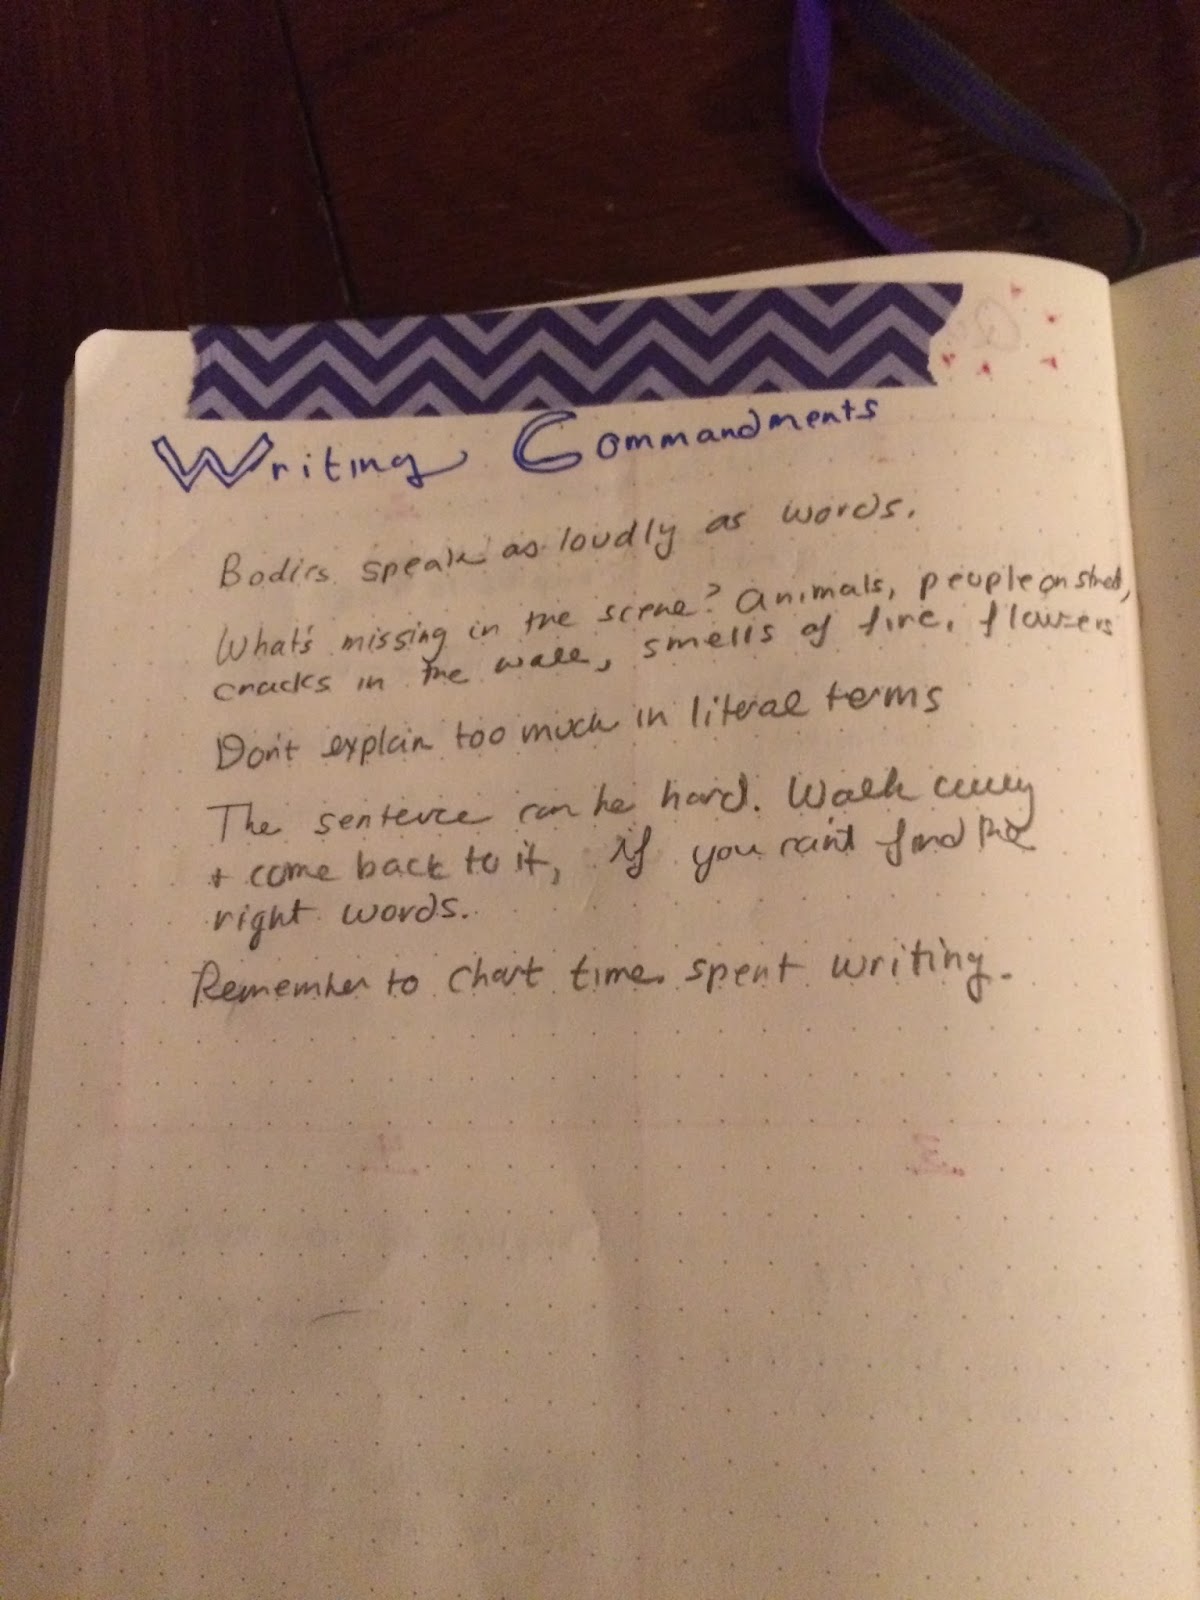 Writing Commandments
Bodies speak as loudly as words.
What's missing in the scene? Animals, people on street,
cracks in the wall, smells of fire, flowers
Don't explain too much in literal terms
The sentence can be hard. Walk away
+ come back to it, if you can't find the
right words.
Remember to chart time spent writing.